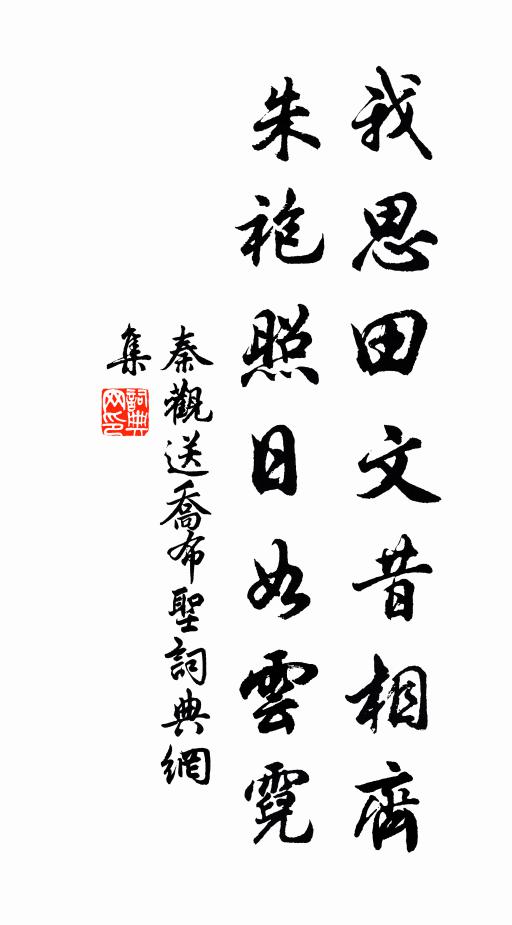 我思田文昔相齊
朱袍照日如雲霓
秦觀送喬布聖詞典網
集
詞典
网印